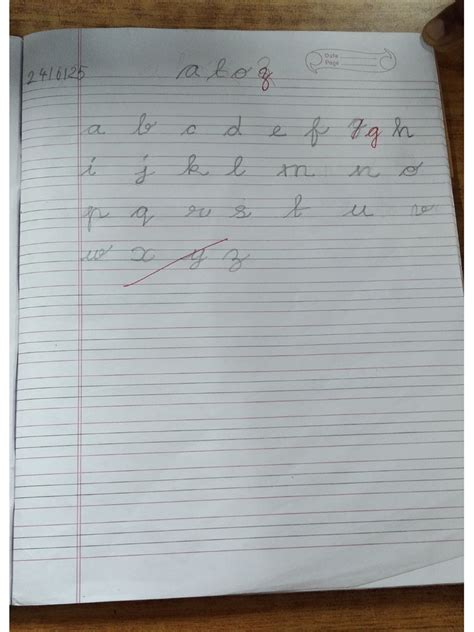 24/6/25 a to z
Date
Page
a b c d e f g g h
i j k l m n o
p q r s t u v
w x y z